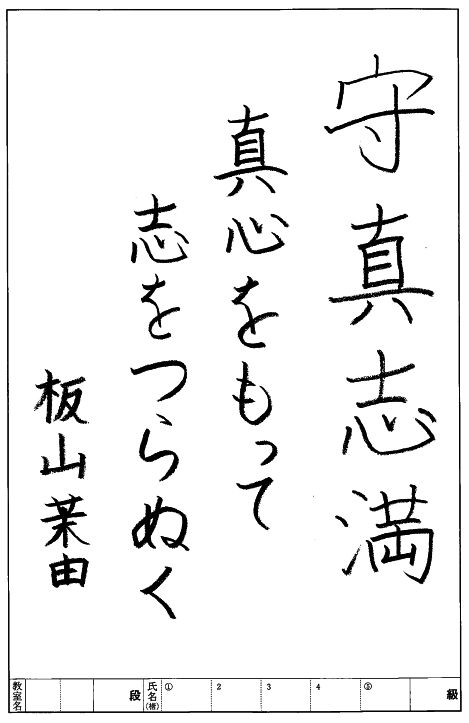 守真志満
真心をもって
志をつらぬく
板山茉由
教室名
段
氏名(称) ① 2 3 4 ⑤
級